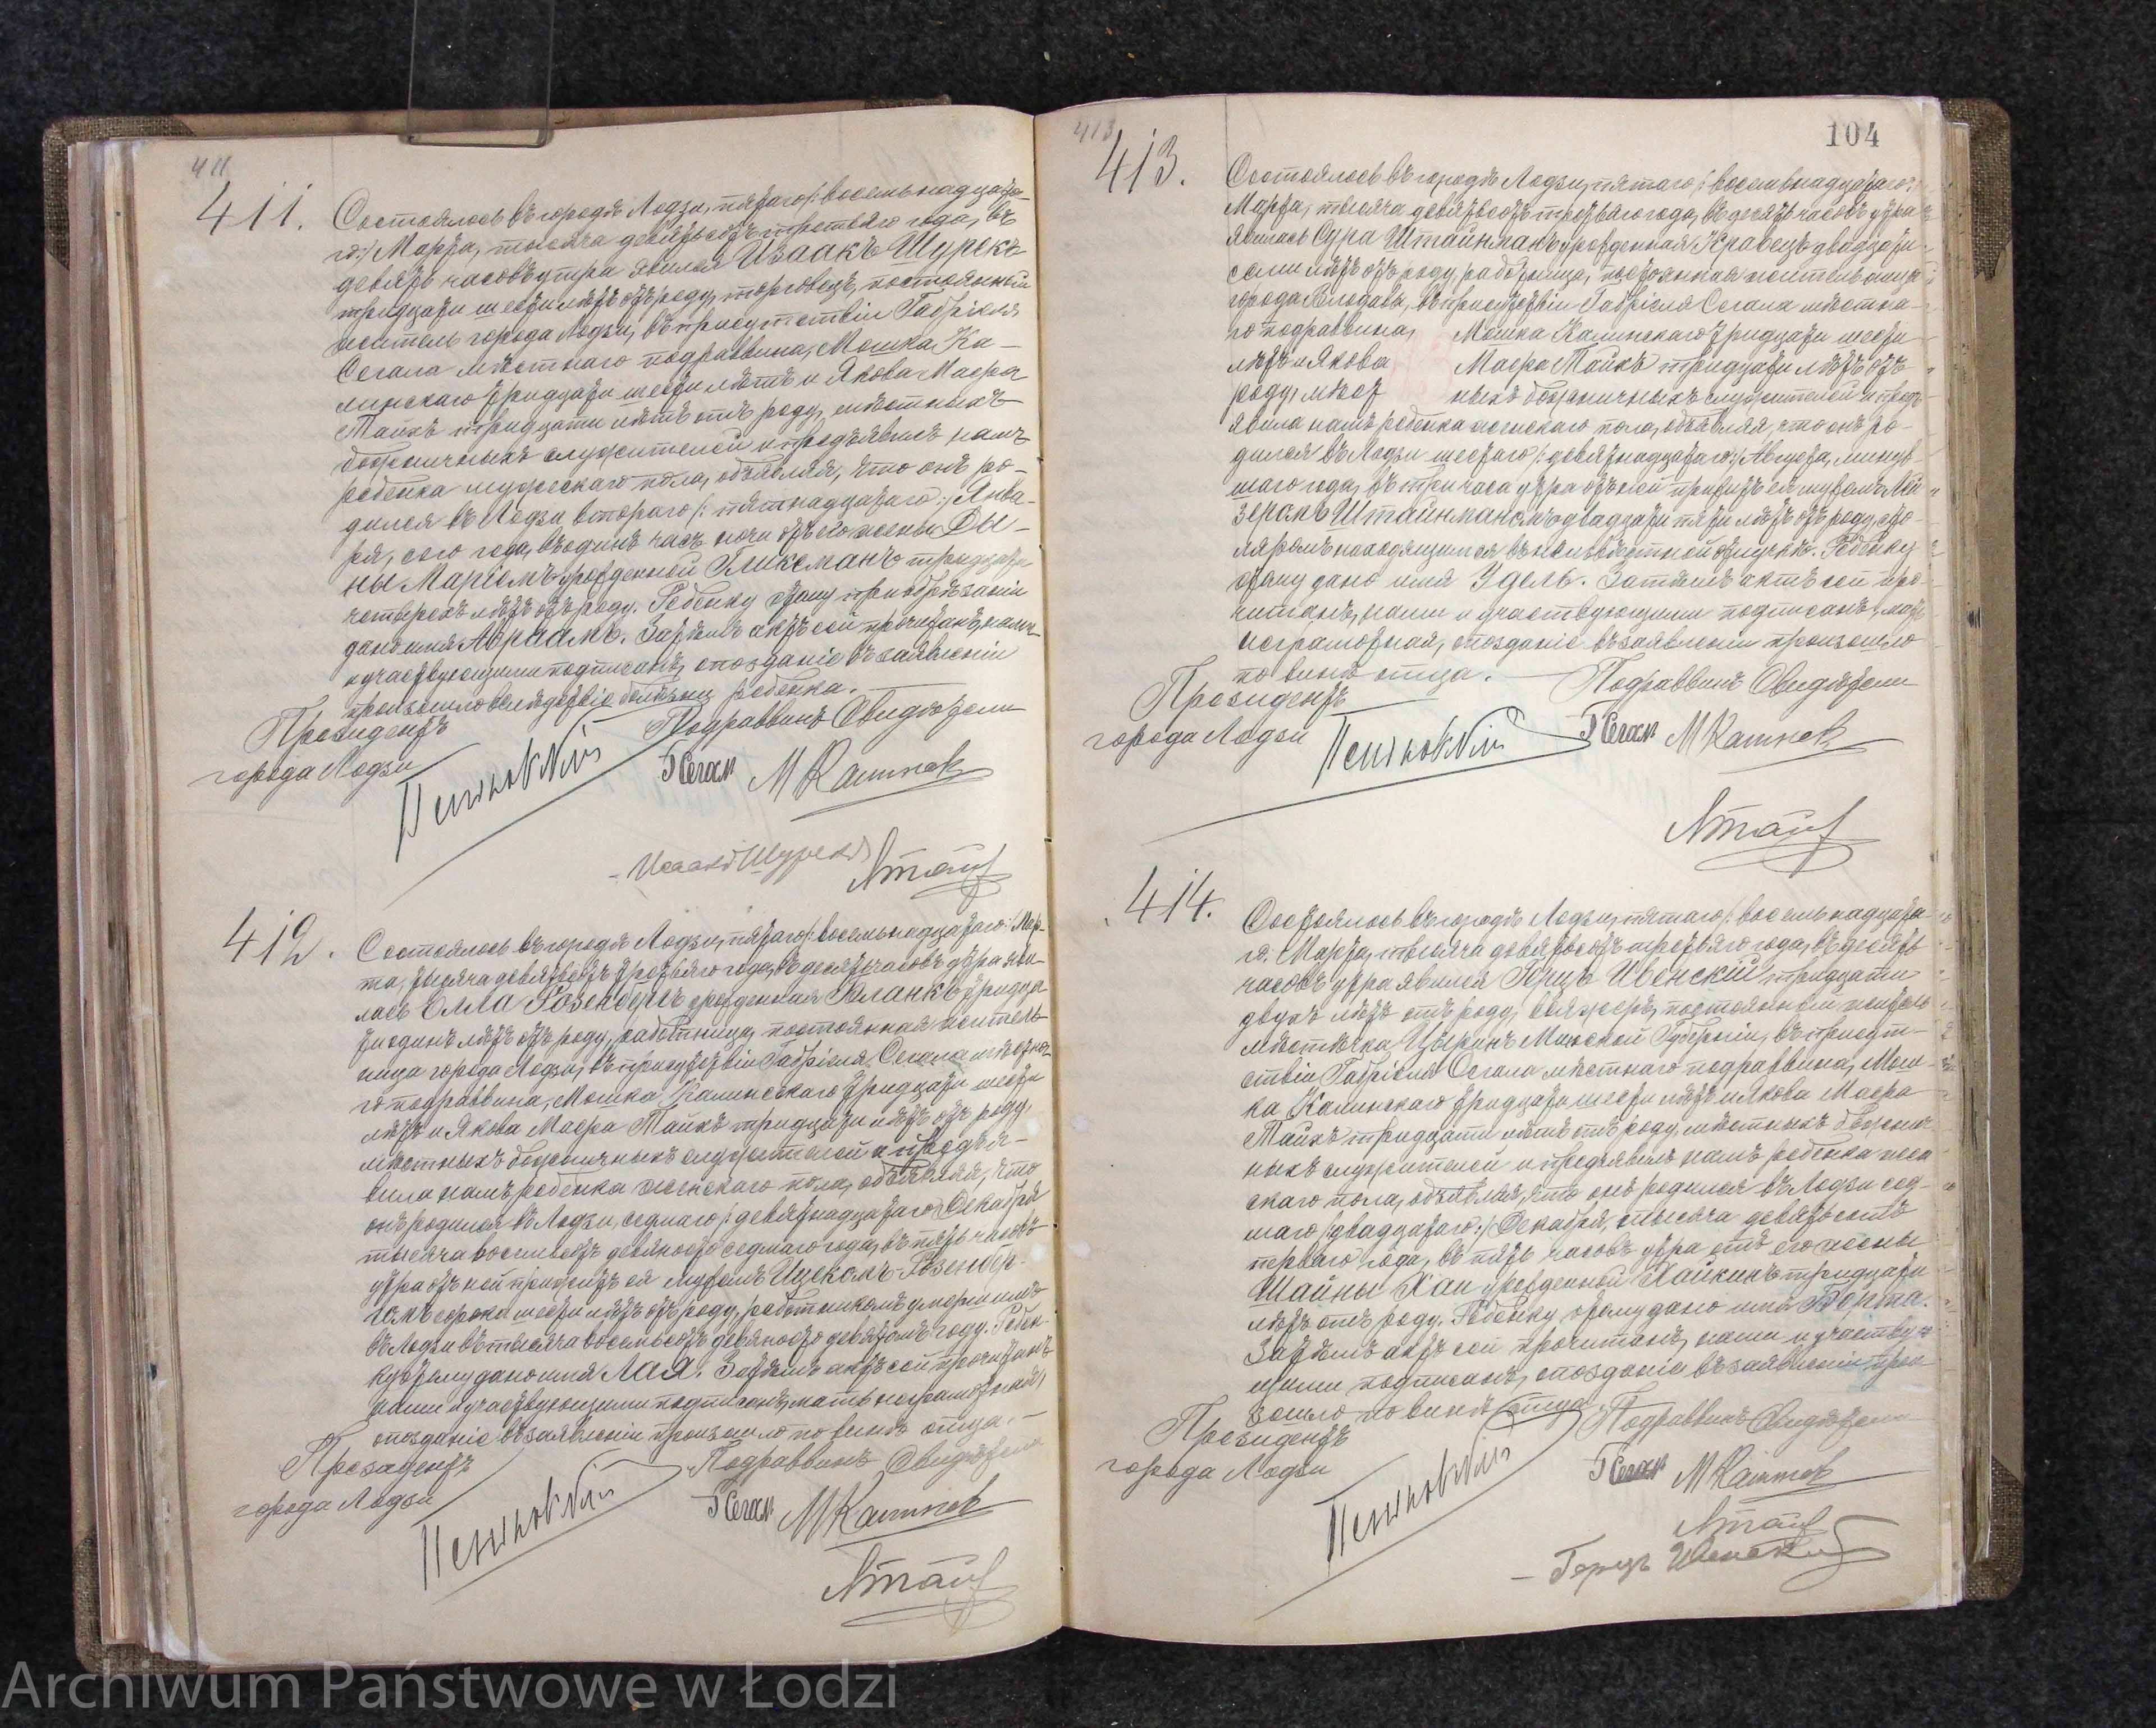 411
411.
Состоялось въ городѣ Лодзи, пятаго /: восемьнадцата-
го :/ Марта, тысяча девятьсотъ третьяго года, въ
девять часовъ утра явился Изаакъ Шурекъ
тридцати шести лѣтъ отъ роду, торговецъ, постоянный
житель города Лодзи, въ присутствіи Габріеля
Сегала мѣстнаго подраввина, Мошка Ка-
минскаго тридцати шести лѣтъ и Якова Маера
Тайхъ тридцати лѣтъ отъ роду, мѣстныхъ
божничныхъ служителей и предъявилъ намъ
ребенка мужескаго пола, объявляя, что онъ ро-
дился въ Лодзи, второго /: пятнадцатаго :/ Янва-
ря, сего года, въ одинъ часъ ночи отъ его жены Ды-
ны Маріемъ урожденной Гликсманъ тридцати
четырехъ лѣтъ отъ роду. Ребенку этому при обрѣзаніи
дано имя Абраамъ. Затѣмъ актъ сей прочитанъ, нами
и участвующими подписанъ, опозданіе въ заявленіи
произошло вслѣдствіе болѣзни ребенка.
Президентъ Подраввинъ Свидѣтели
города Лодзи
Пеньковскій ГСегал М Каминск
Исаакъ Шурекъ
ЯТайх
412.
Состоялось въ городѣ Лодзи, пятаго /: восемьнадцатаго :/ Мар-
та, тысяча девятьсотъ третьяго года, въ десять часовъ утра яви-
лась Элла Розенбергъ урожденная Бланкъ тридца-
ти одинъ лѣтъ отъ роду, работница, постоянная житель-
ница города Лодзи, въ присутствіи Габріеля Сегала мѣстна-
го подраввина, Мошка Каминскаго тридцати шести
лѣтъ и Якова Маера Тайхъ тридцати лѣтъ отъ роду,
мѣстныхъ божничныхъ служителей и предъя-
вила намъ ребенка женскаго пола, объявляя, что
онъ родился въ Лодзи, седмаго /: девятнадцатаго :/ Декабря
тысяча восемьсотъ девяносто седмаго года, въ пять часовъ
утра отъ ней прижитъ ея мужемъ Ицекомъ Розенбер-
гомъ сорока шести лѣтъ отъ роду, работникомъ умершимъ
въ Лодзи въ тысяча восемьсотъ девяносто девятомъ году. Ребен-
ку этому дано имя Лая. Затѣмъ актъ сей прочитанъ
нами и участвующими подписанъ, мать неграмотная,
опозданіе въ заявленіи произошло по винѣ отца.
Президентъ Подраввинъ Свидѣтели
города Лодзи
Пеньковскій ГСегал М Каминск
ЯТайх
413
104
413.
Состоялось въ городѣ Лодзи, пятаго /: восемьнадцатаго :/
Марта, тысяча девятьсотъ третьяго года, въ десять часовъ утра
явилась Сура Штайнманъ урожденная Кравецъ двадцати
семи лѣтъ отъ роду, работница, постоянная жительница
города Влодава, въ присутствіи Габріеля Сегала мѣстна-
го подраввина, Мошка Каминскаго тридцати шести
лѣтъ и Якова Маера Тайхъ тридцати лѣтъ отъ
роду, мѣст ныхъ божничныхъ служителей и предъ-
явила намъ ребенка женскаго пола, объявляя, что онъ ро-
дился въ Лодзи шестаго /: девятнадцатаго :/ Августа, минув-
шаго года, въ три часа утра отъ ней прижитъ ея мужемъ Лей-
зеромъ Штайнманомъ двадцати пяти лѣтъ отъ роду, сто-
ляромъ находящимся въ неизвѣстной отлучкѣ. Ребенку
этому дано имя Удель. Затѣмъ актъ сей про-
читанъ, нами и участвующими подписанъ, мать
неграмотная, опозданіе въ заявленіи произошло
по винѣ отца. Подраввинъ Свидѣтели
Президентъ
города Лодзи
Пеньковскій ГСегал М Каминск
ЯТайх
414.
Состоялось въ городѣ Лодзи, пятаго /: восемьнадцата-
го :/ Марта, тысяча девятьсотъ третьяго года, въ десять
часовъ утра явился Герцъ Ивенскій тридцати
двухъ лѣтъ отъ роду, постоянный житель
мѣстечка Цыринъ Минской Губерніи, въ присут-
ствіи Габріеля Сегала мѣстнаго подраввина, Мош-
ка Каминскаго тридцати шести лѣтъ и Якова Маера
Тайхъ тридцати лѣтъ отъ роду, мѣстныхъ божнич-
ныхъ служителей и предъявилъ намъ ребенка жен-
скаго пола, объявляя, что онъ родился въ Лодзи сед-
маго /: двадцатаго :/ Декабря, тысяча девятьсотъ
перваго года, въ пять часовъ утра отъ его жены
Шайны Хаи урожденной Хайкинъ тридцати
лѣтъ отъ роду. Ребенку этому дано имя Берта.
Затѣмъ актъ сей прочитанъ, нами и участвую-
щими подписанъ, опозданіе въ заявленіи прои-
зошло по винѣ отца. Подраввинъ Свидѣтели
Президентъ
города Лодзи
Пеньковскій ГСегал М Каминск
ЯТайх
Герцъ Ивенскій
Archiwum Państwowe w Łodzi